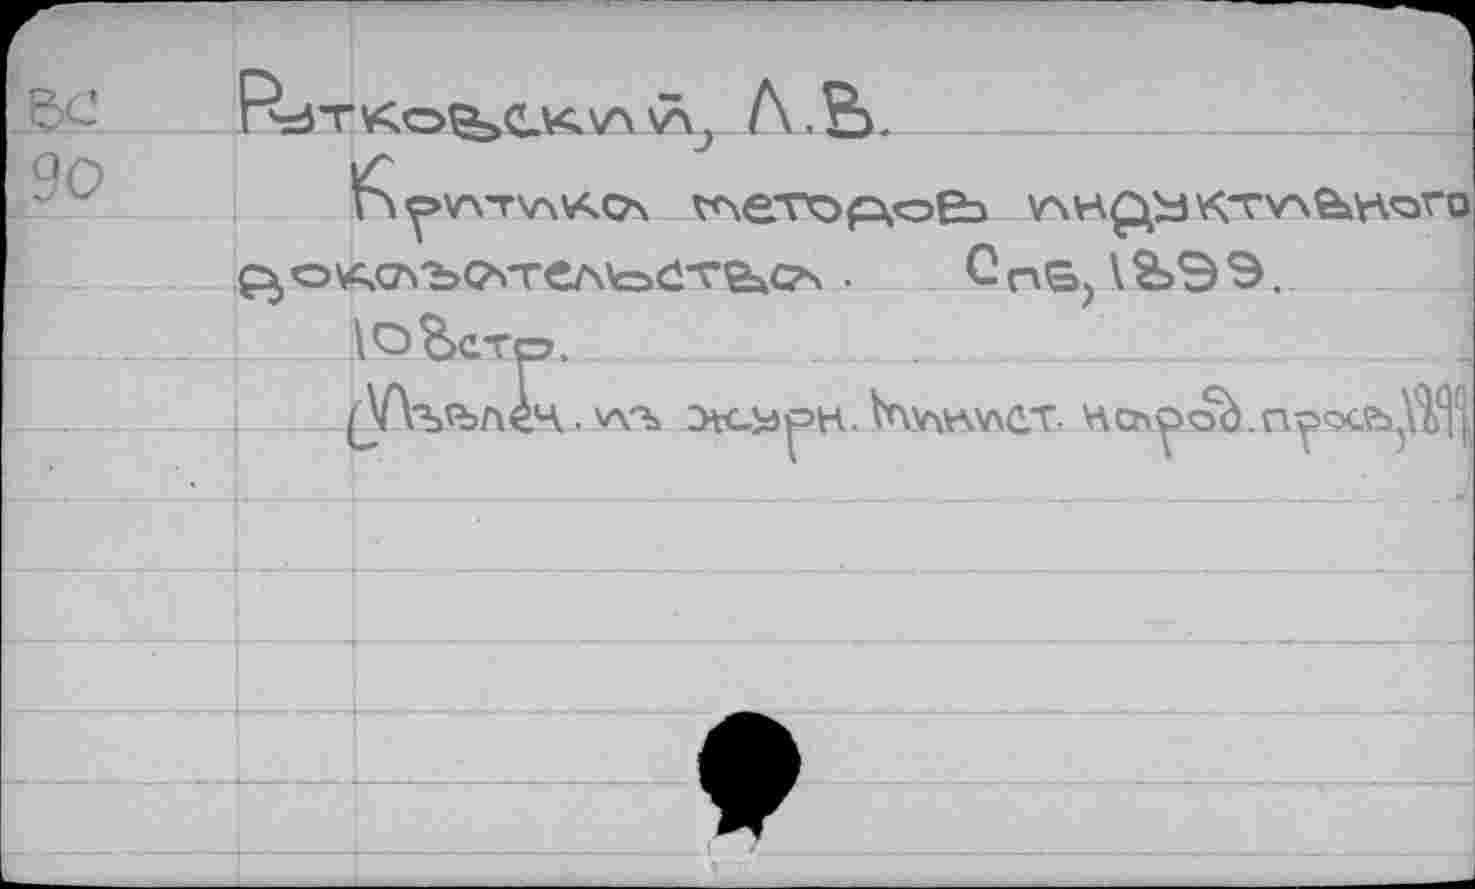 ВС Рутковский, Л.В.
90 Критика методов индуктивного
доказательства. Спб, 1899.
108 стр.
(Извлеч. из журн. Минист. народ. просв,